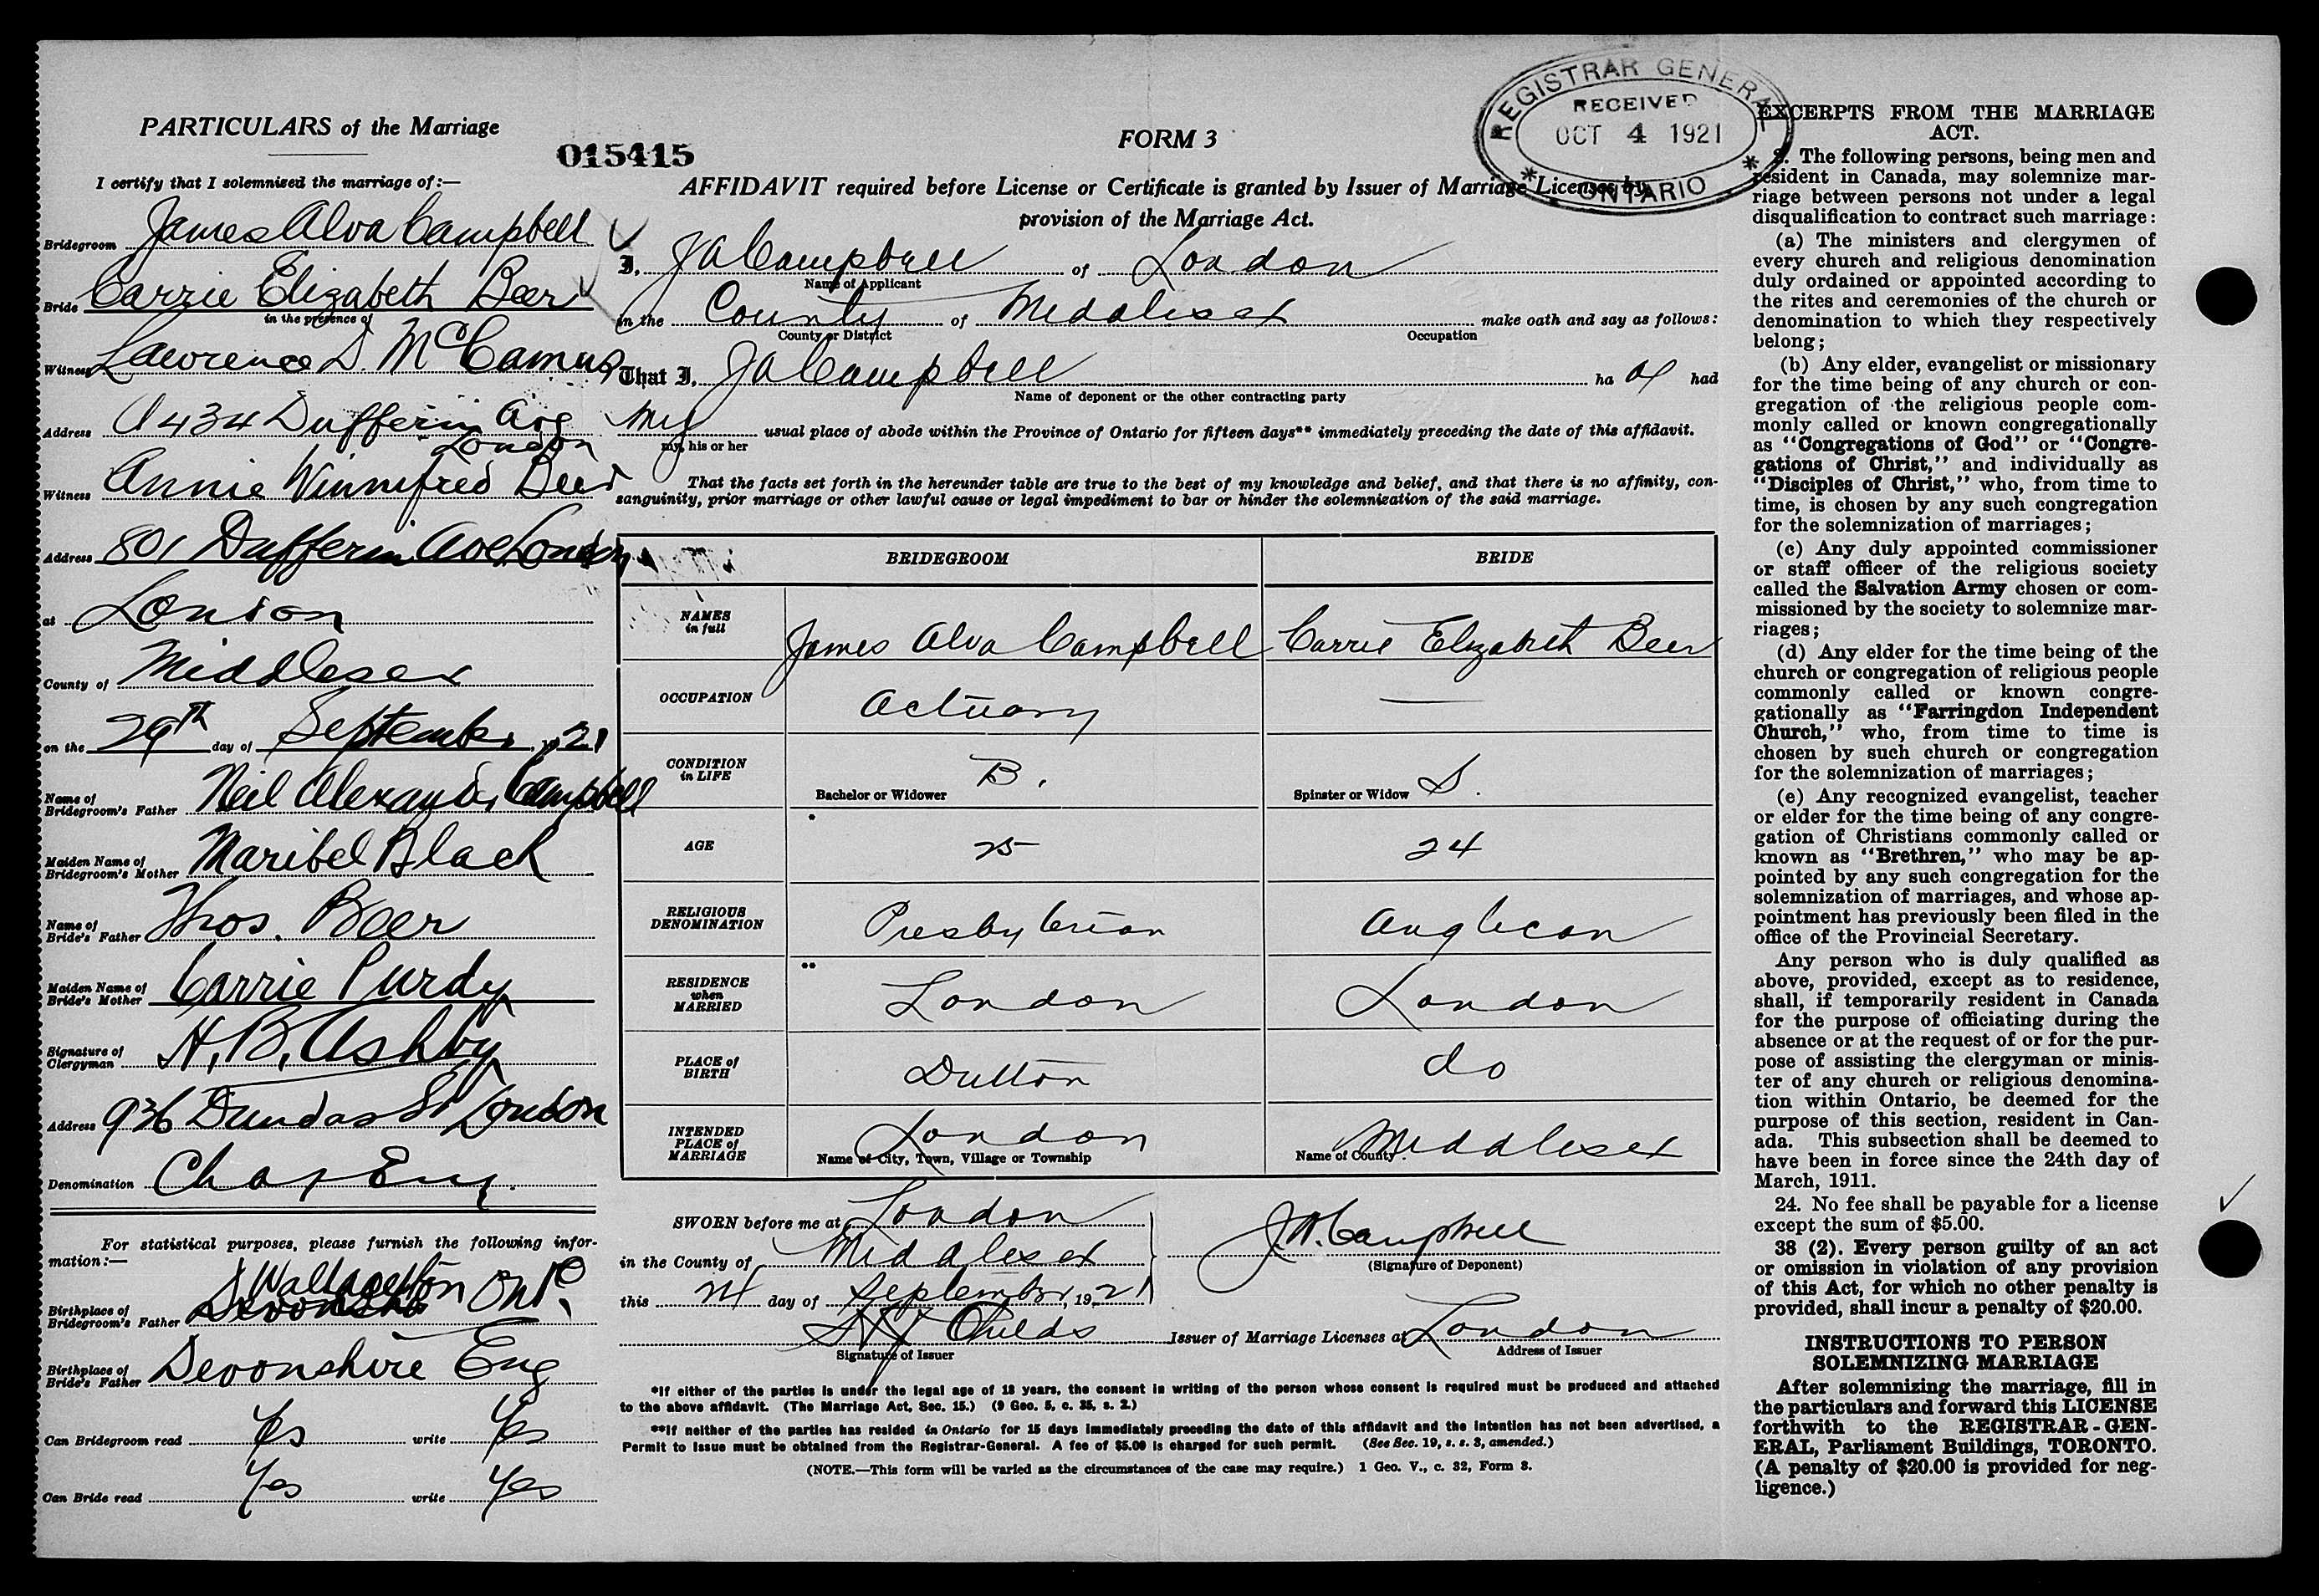 PARTICULARS of the Marriage
I certify that I solemnised the marriage of:—
Bridegroom James Alva Campbell
Bride Carrie Elizabeth Beer
in the presence of
Witness Lawrence D. McCamus
Address 434 Dufferin Ave
London
Witness Annie Winnifred Beer
Address 801 Dufferin Ave London
at London
County of Middlesex
on the 29th day of September 1921
Name of
Bridegroom's Father Neil Alexander Campbell
Maiden Name of
Bridegroom's Mother Maribel Black
Name of
Bride's Father Thos. Beer
Maiden Name of
Bride's Mother Carrie Purdy
Signature of
Clergyman H. B. Ashby
Address 936 Dundas St London
Denomination Ch of Eng.
For statistical purposes, please furnish the following infor-
mation:—
Wallacetown Ont.
Birthplace of
Bridegroom's Father Devonshire
Birthplace of
Bride's Father Devonshire Eng
Can Bridegroom read Yes write Yes
Can Bride read Yes write Yes
015415
FORM 3
REGISTRAR GENERAL
RECEIVED
OCT 4 1921
* ONTARIO *
AFFIDAVIT required before License or Certificate is granted by Issuer of Marriage Licenses by
provision of the Marriage Act.
I, J A Campbell of London
Name of Applicant
in the County of Middlesex make oath and say as follows:
County or District Occupation
That I, J A Campbell ha had
Name of deponent or the other contracting party
My usual place of abode within the Province of Ontario for fifteen days** immediately preceding the date of this affidavit.
my, his or her
That the facts set forth in the hereunder table are true to the best of my knowledge and belief, and that there is no affinity, con-
sanguinity, prior marriage or other lawful cause or legal impediment to bar or hinder the solemnisation of the said marriage.
BRIDEGROOM BRIDE
NAMES
in full James Alva Campbell Carrie Elizabeth Beer
OCCUPATION Actuary —
CONDITION
in LIFE Bachelor or Widower B. Spinster or Widow S.
* AGE 25 24
RELIGIOUS
DENOMINATION Presbyterian Anglican
** RESIDENCE
when
MARRIED London London
PLACE of
BIRTH Dutton do
INTENDED
PLACE of
MARRIAGE London Middlesex
Name of City, Town, Village or Township Name of County
SWORN before me at London
in the County of Middlesex J. A. Campbell
(Signature of Deponent)
this day of September, 1921
Childs Issuer of Marriage Licenses at London
Signature of Issuer Address of Issuer
*If either of the parties is under the legal age of 18 years, the consent in writing of the person whose consent is required must be produced and attached
to the above affidavit. (The Marriage Act, Sec. 15.) (9 Geo. 5, c. 35, s. 2.)
**If neither of the parties has resided in Ontario for 15 days immediately preceding the date of this affidavit and the intention has not been advertised, a
Permit to issue must be obtained from the Registrar-General. A fee of $5.00 is charged for such permit. (See Sec. 19, s. s. 3, amended.)
(NOTE.—This form will be varied as the circumstances of the case may require.) 1 Geo. V., c. 32, Form 3.
EXCERPTS FROM THE MARRIAGE
ACT.
The following persons, being men and
resident in Canada, may solemnize mar-
riage between persons not under a legal
disqualification to contract such marriage:
(a) The ministers and clergymen of
every church and religious denomination
duly ordained or appointed according to
the rites and ceremonies of the church or
denomination to which they respectively
belong;
(b) Any elder, evangelist or missionary
for the time being of any church or con-
gregation of the religious people com-
monly called or known congregationally
as "Congregations of God" or "Congre-
gations of Christ," and individually as
"Disciples of Christ," who, from time to
time, is chosen by any such congregation
for the solemnization of marriages;
(c) Any duly appointed commissioner
or staff officer of the religious society
called the Salvation Army chosen or com-
missioned by the society to solemnize mar-
riages;
(d) Any elder for the time being of the
church or congregation of religious people
commonly called or known congre-
gationally as "Farringdon Independent
Church," who, from time to time is
chosen by such church or congregation
for the solemnization of marriages;
(e) Any recognized evangelist, teacher
or elder for the time being of any congre-
gation of Christians commonly called or
known as "Brethren," who may be ap-
pointed by any such congregation for the
solemnization of marriages, and whose ap-
pointment has previously been filed in the
office of the Provincial Secretary.
Any person who is duly qualified as
above, provided, except as to residence,
shall, if temporarily resident in Canada
for the purpose of officiating during the
absence or at the request of or for the pur-
pose of assisting the clergyman or minis-
ter of any church or religious denomina-
tion within Ontario, be deemed for the
purpose of this section, resident in Can-
ada. This subsection shall be deemed to
have been in force since the 24th day of
March, 1911.
24. No fee shall be payable for a license
except the sum of $5.00.
38 (2). Every person guilty of an act
or omission in violation of any provision
of this Act, for which no other penalty is
provided, shall incur a penalty of $20.00.
INSTRUCTIONS TO PERSON
SOLEMNIZING MARRIAGE
After solemnizing the marriage, fill in
the particulars and forward this LICENSE
forthwith to the REGISTRAR-GEN-
ERAL, Parliament Buildings, TORONTO.
(A penalty of $20.00 is provided for neg-
ligence.)